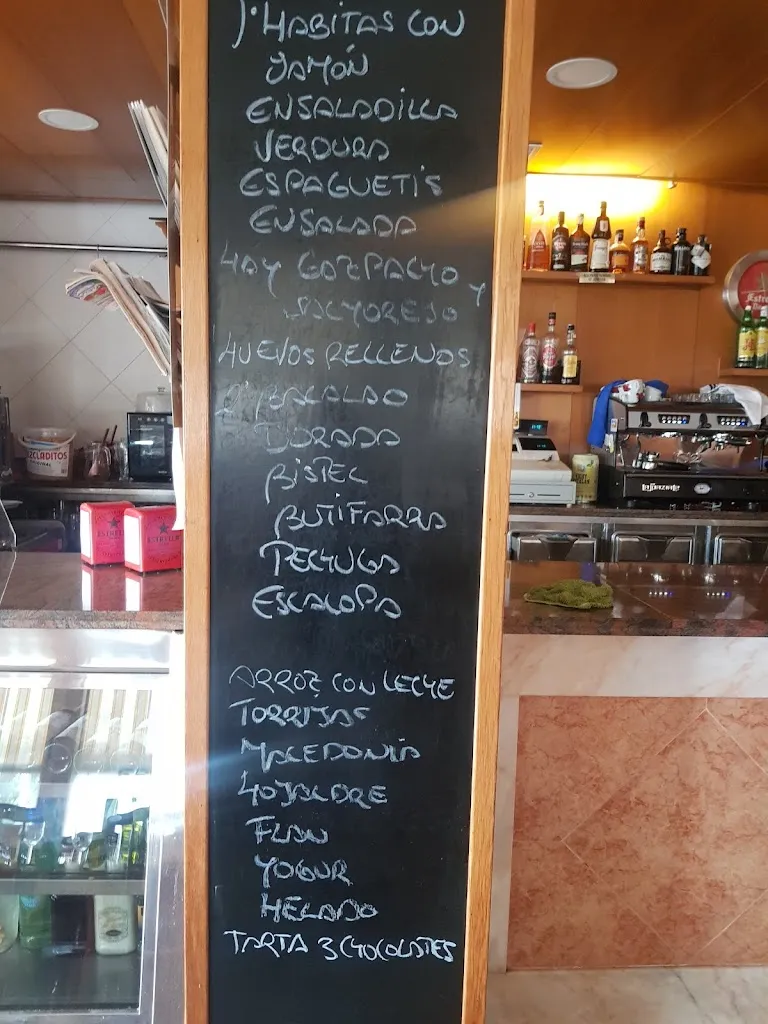 1º HABITAS CON
JAMÓN
ENSALADILLA
VERDURA
ESPAGUETIS
ENSALADA
HAY GAZPACHO Y
SALMOREJO
HUEVOS RELLENOS
2º BACALAO
DORADA
BISTEC
BUTIFARRA
PECHUGA
ESCALOPA
ARROZ CON LECHE
TORRIJAS
MACEDONIA
HOJALDRE
FLAN
YOGUR
HELADO
TARTA 3 CHOCOLATES
MEZCLADITOS
ESTRELLA